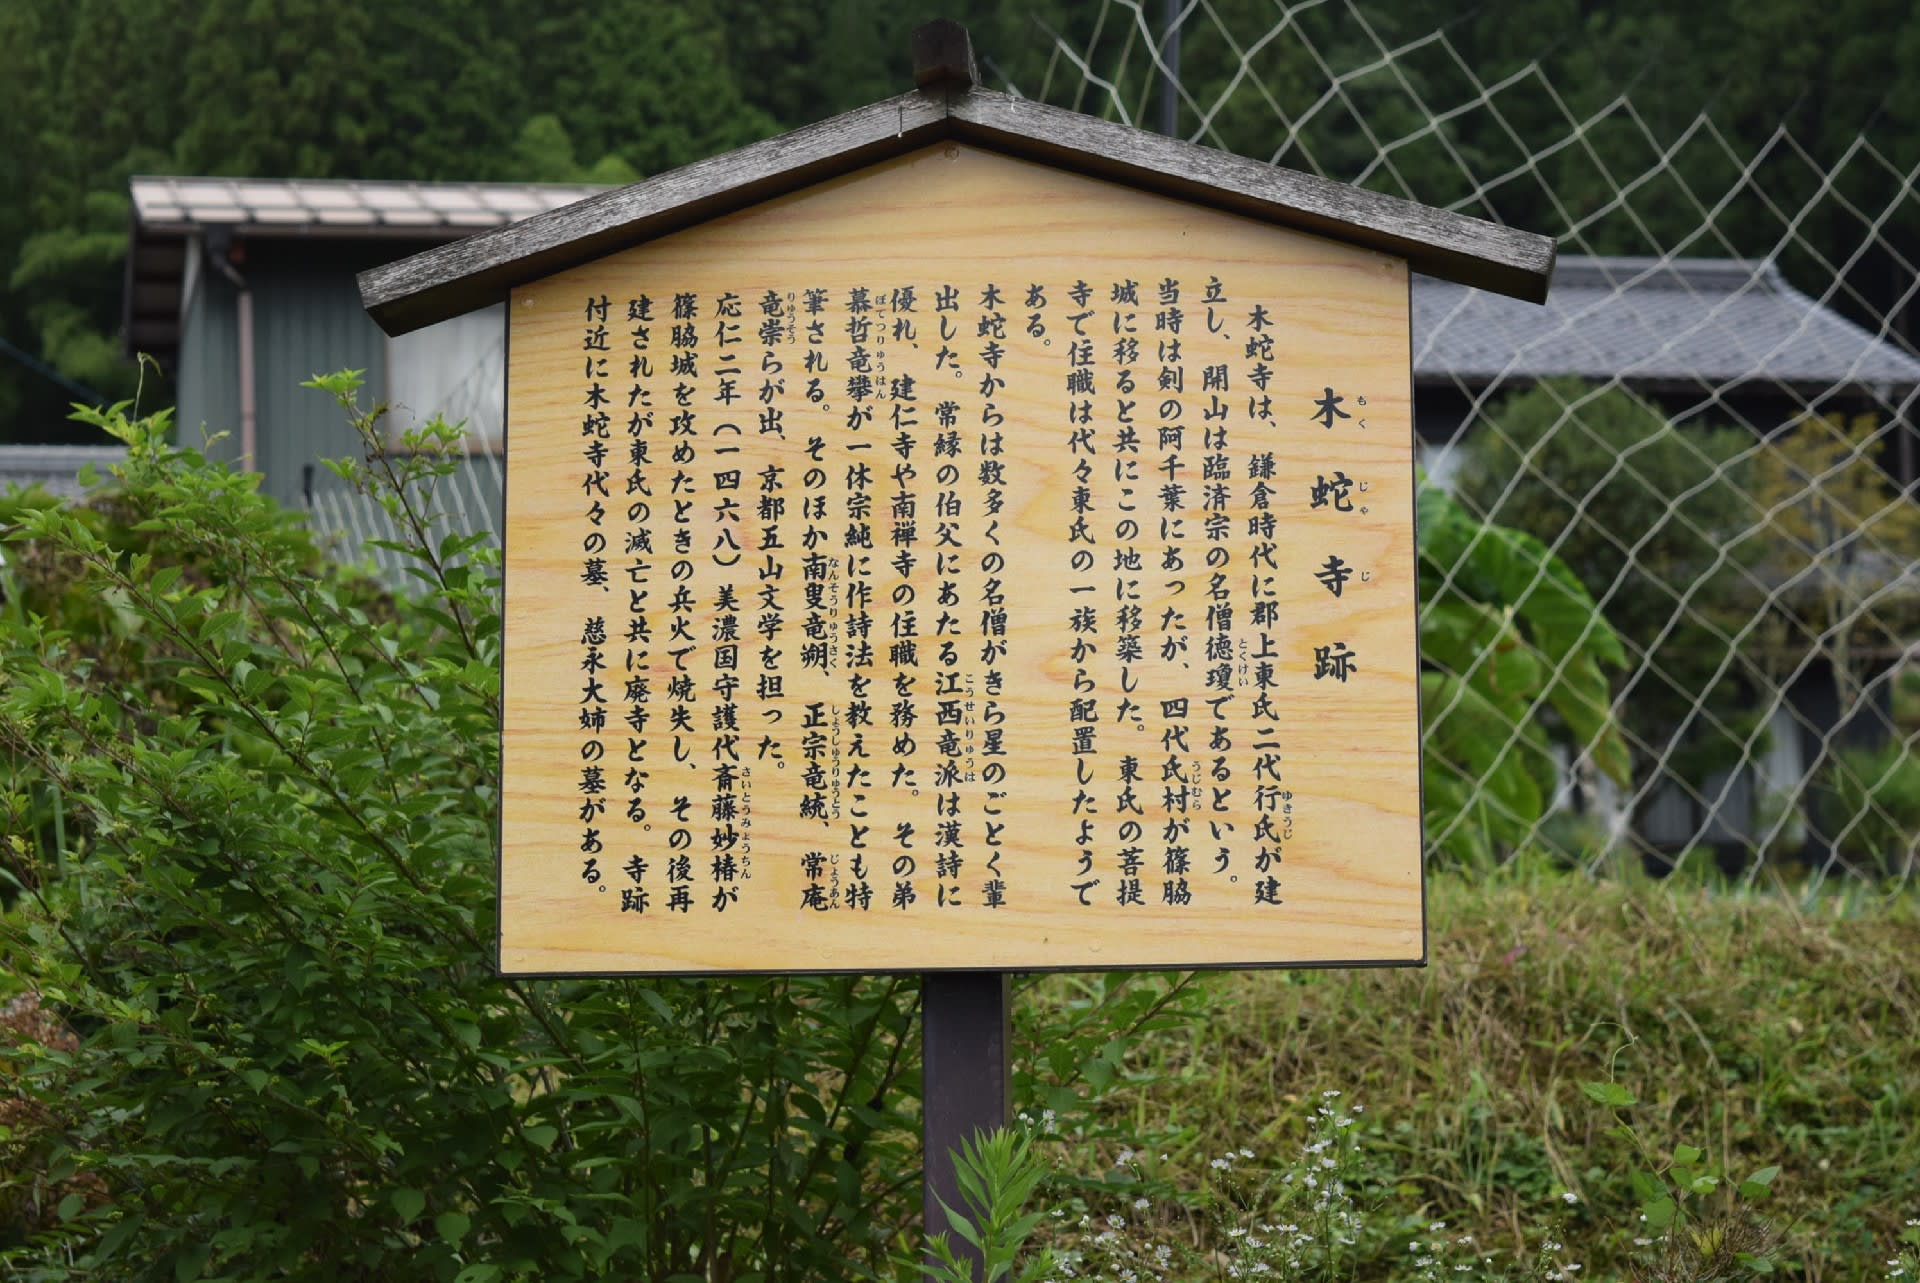 木蛇寺跡
木蛇寺は、鎌倉時代に郡上東氏二代行氏が建
立し、開山は臨済宗の名僧徳瓊であるという。
当時は剣の阿千葉にあったが、四代氏村が篠脇
城に移ると共にこの地に移築した。東氏の菩提
寺で住職は代々東氏の一族から配置したようで
ある。
木蛇寺からは数多くの名僧がきら星のごとく輩
出した。常縁の伯父にあたる江西竜派は漢詩に
優れ、建仁寺や南禅寺の住職を務めた。その弟
慕哲竜攀が一休宗純に作詩法を教えたことも特
筆される。そのほか南叟竜朔、正宗竜統、常庵
竜崇らが出、京都五山文学を担った。
応仁二年（一四六八）美濃国守護代斎藤妙椿が
篠脇城を攻めたときの兵火で焼失し、その後再
建されたが東氏の滅亡と共に廃寺となる。寺跡
付近に木蛇寺代々の墓、慈永大姉の墓がある。